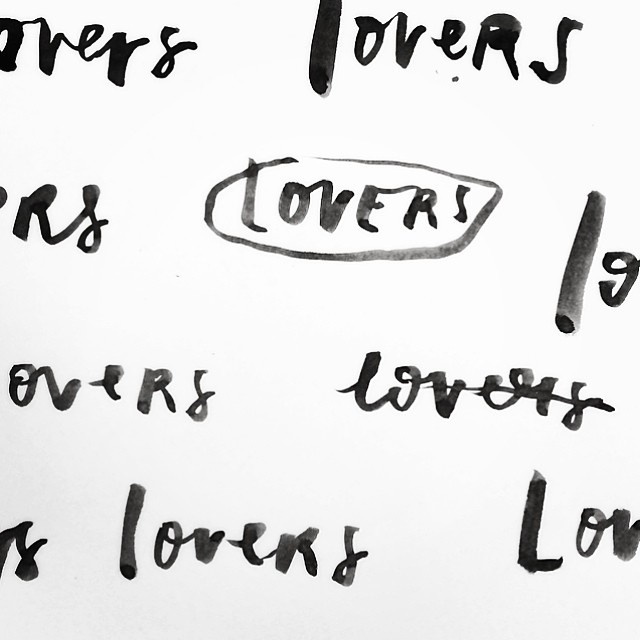 overs lovers
ers LOVERS lo
overs lovers
rs lovers Lov